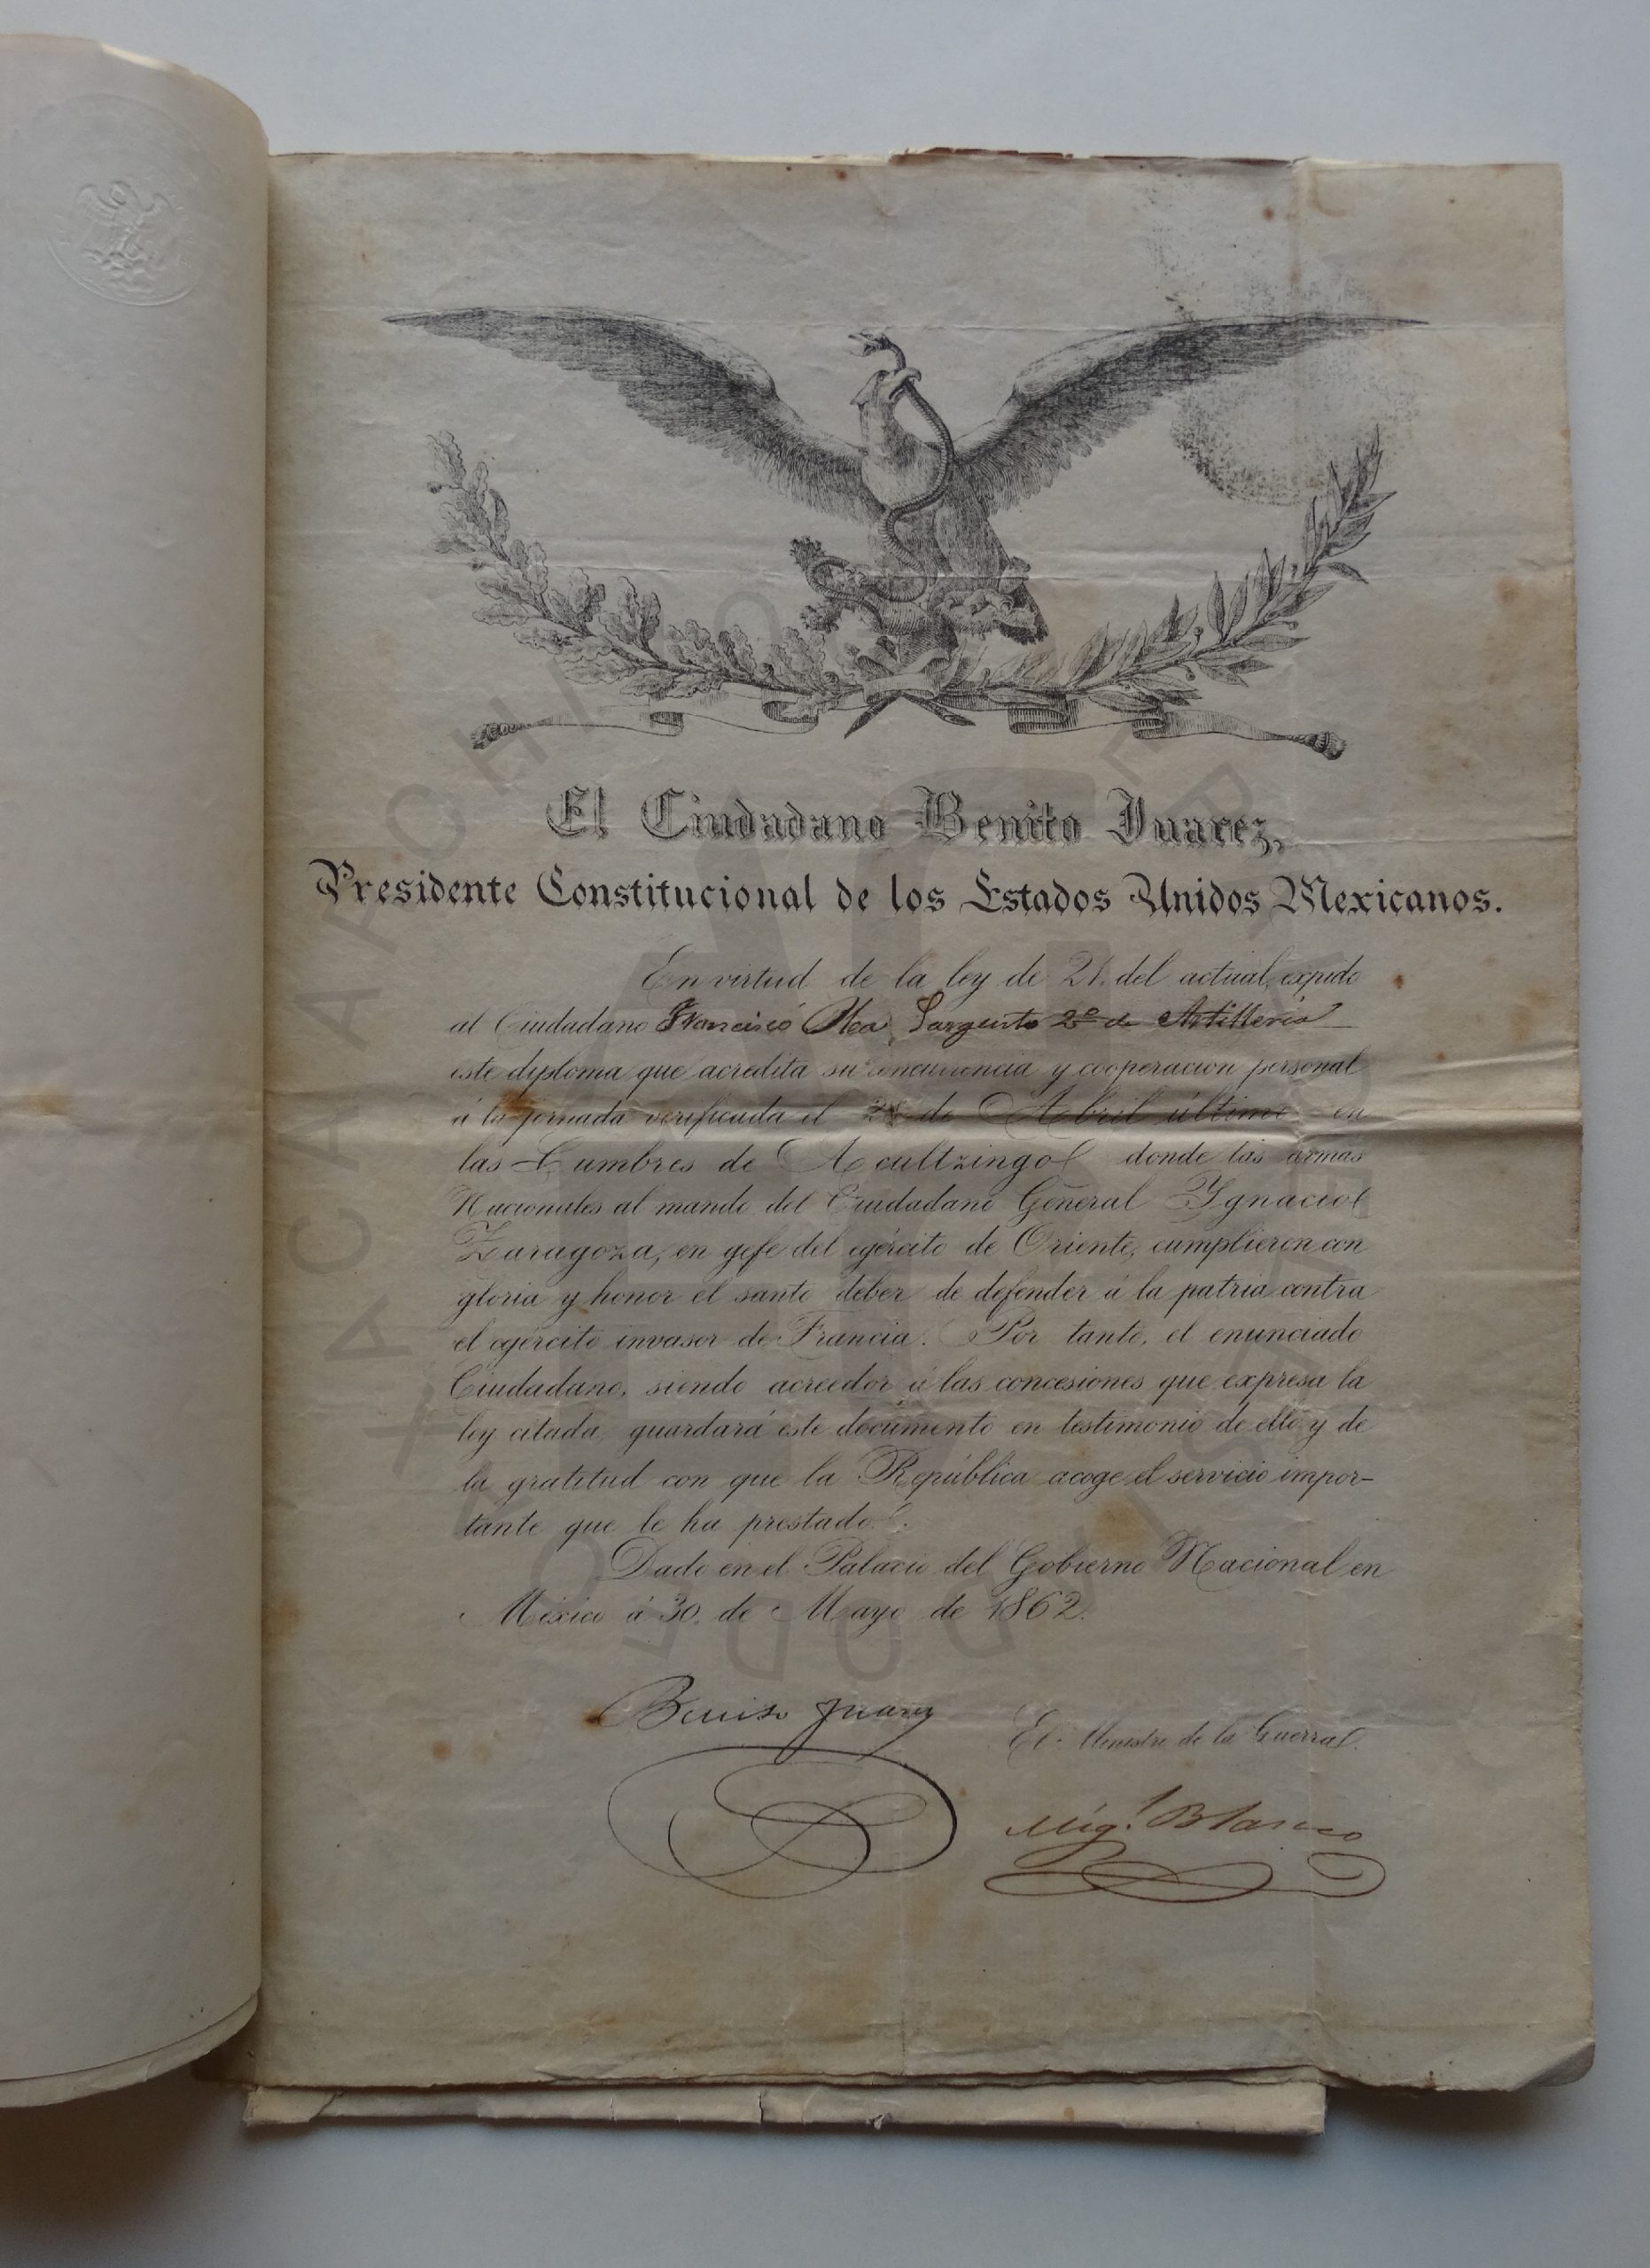 El Ciudadano Benito Juarez,
Presidente Constitucional de los Estados Unidos Mexicanos.
En virtud de la ley de 21. del actual, expido
al Ciudadano Francisco Sargento 2º de Artilleria
este diploma que acredita su concurrencia y cooperacion personal
á la jornada verificada el 28 de Abril último en
las Cumbres de Acultzingo donde las armas
Nacionales al mando del Ciudadano General Ygnacio
Zaragoza, en gefe del egército de Oriente, cumplieron con
gloria y honor el santo deber de defender á la patria contra
el egército invasor de Francia. Por tanto, el enunciado
Ciudadano, siendo acreedor á las concesiones que expresa la
ley citada, guardará este documento en testimonio de ello y de
la gratitud con que la República acoge el servicio impor-
tante que le ha prestado.
Dado en el Palacio del Gobierno Nacional en
México á 30. de Mayo de 1862.
Benito Juarez
El Ministro de la Guerra.
Mig.l Blanco